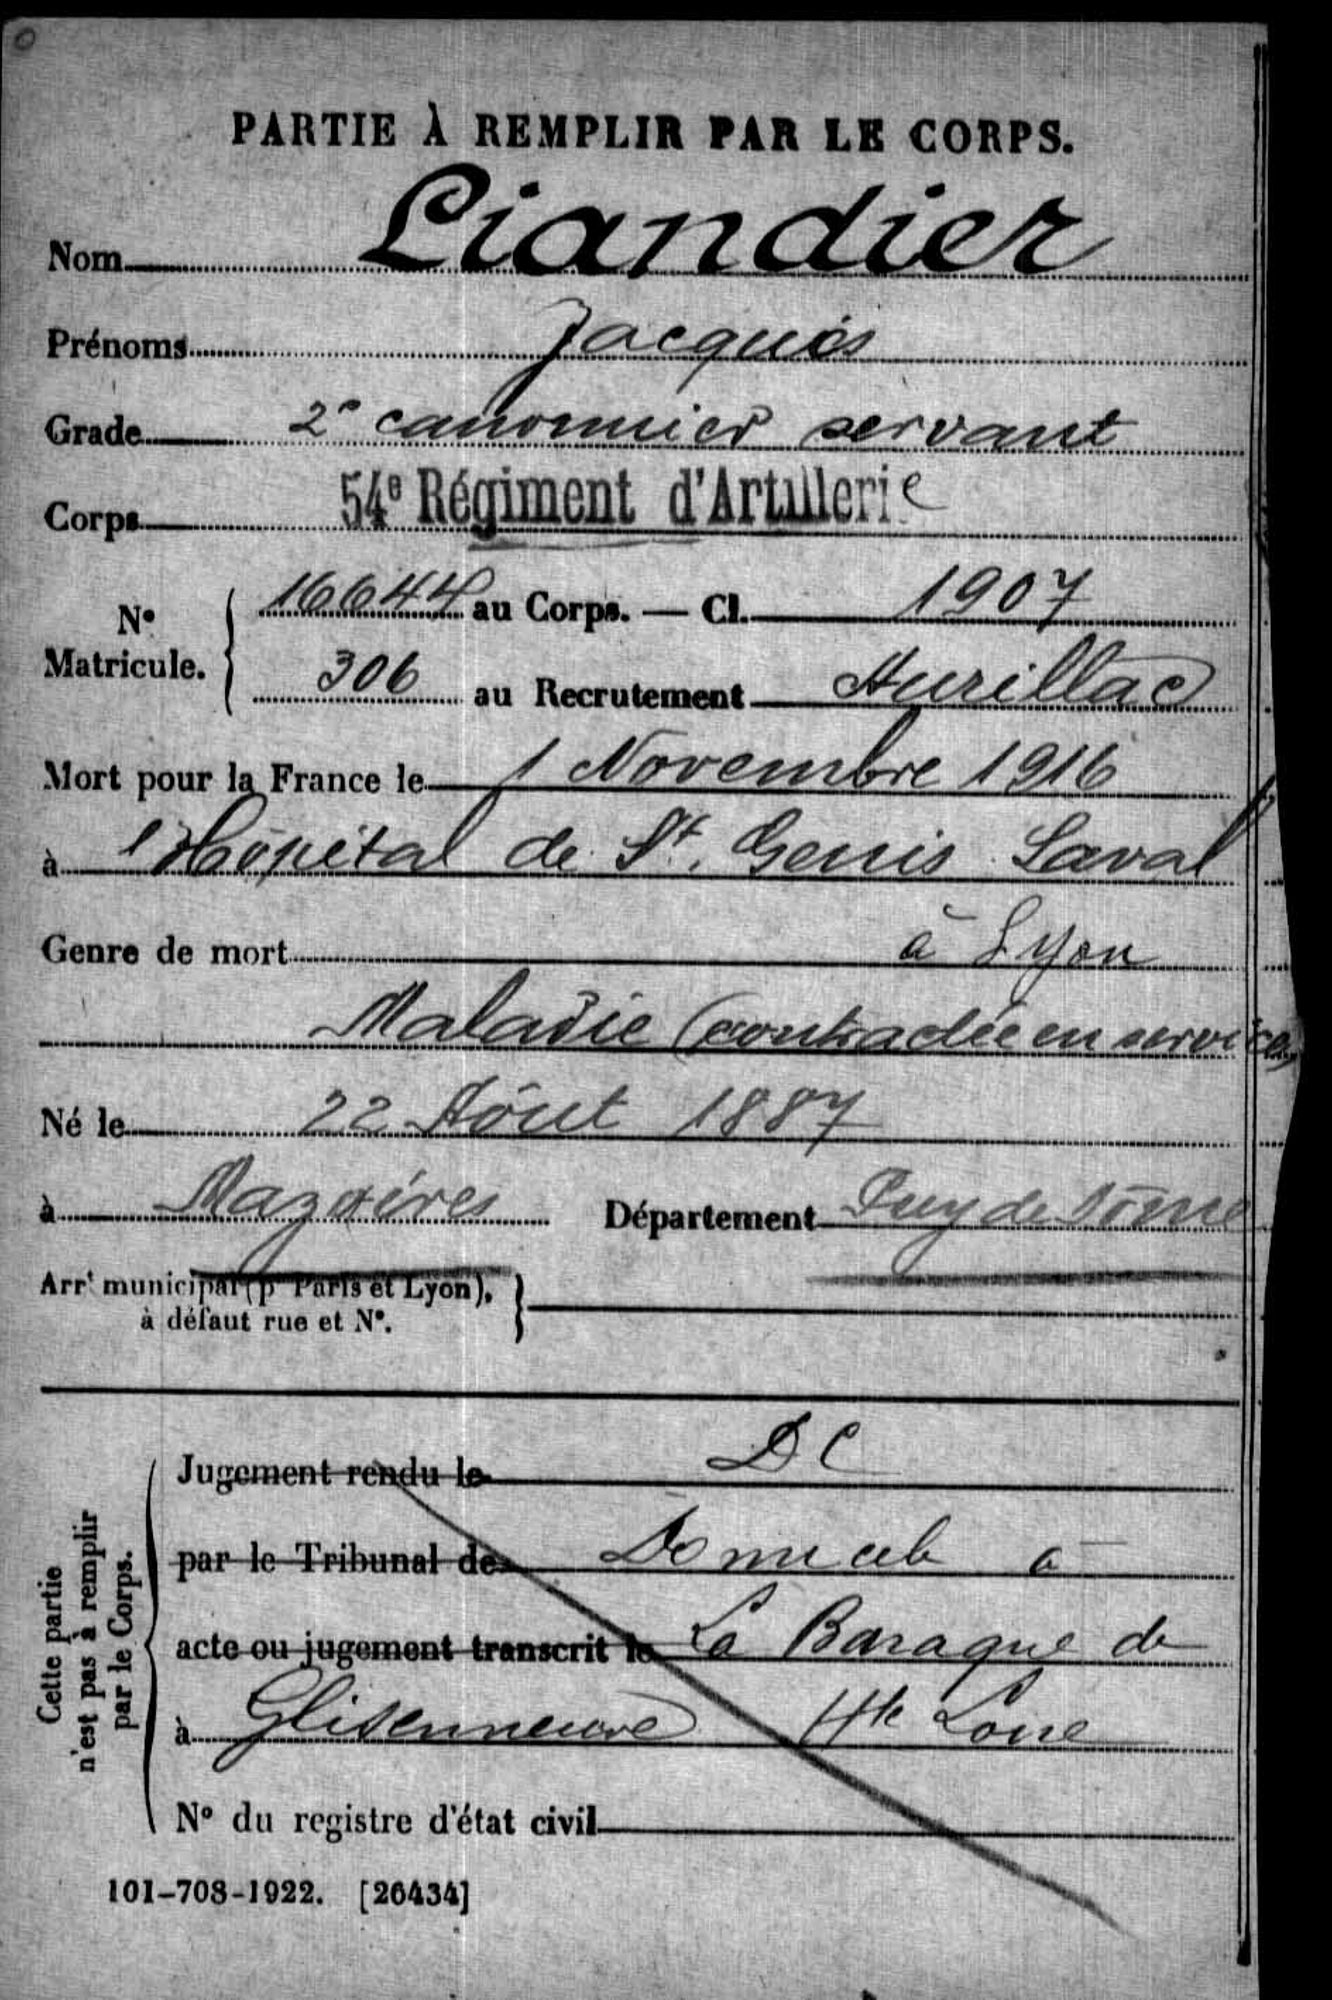 PARTIE À REMPLIR PAR LE CORPS.
Nom Liandier
Prénoms Jacques
Grade 2e canonnier servant
Corps 54e Régiment d'Artillerie
No Matricule. 16644 au Corps. — Cl. 1907
306 au Recrutement Aurillac
Mort pour la France le 1 Novembre 1916
à l'Hôpital de St. Genis Laval
Genre de mort à Lyon
Maladie (contractée en service)
Né le 22 Aôut 1887
à Mazoires Département Puy de Dôme
Arrt municipal (pr Paris et Lyon), à défaut rue et No.
Cette partie n'est pas à remplir par le Corps.
Jugement rendu le DC
par le Tribunal de Domicile à
acte ou jugement transcrit le La Baraque de
à Hte Loire
No du registre d'état civil
101-708-1922. [26434]